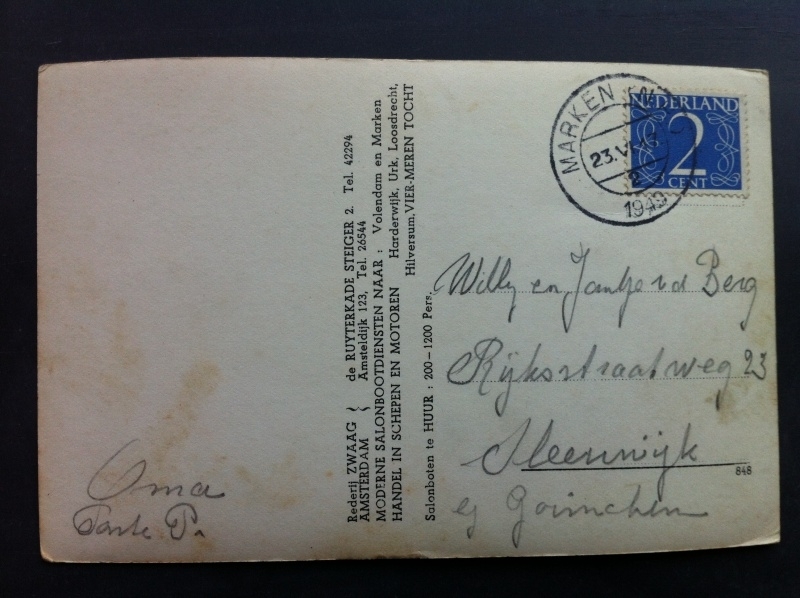 MARKEN (N
23.VI
2-3
1949
NEDERLAND
2
CENT
Rederij ZWAAG { de RUYTERKADE STEIGER 2. Tel. 42294
AMSTERDAM { Amsteldijk 123, Tel. 26544
MODERNE SALONBOOTDIENSTEN NAAR: Volendam en Marken
HANDEL IN SCHEPEN EN MOTOREN Harderwijk, Urk, Loosdrecht,
Hilversum, VIER-MEREN TOCHT
Salonboten te HUUR: 200-1200 Pers.
Willy en Jantje v d Berg
Rijksstraatweg 23
Sleeuwijk
848
bij Gorinchem
Oma
Tante P.